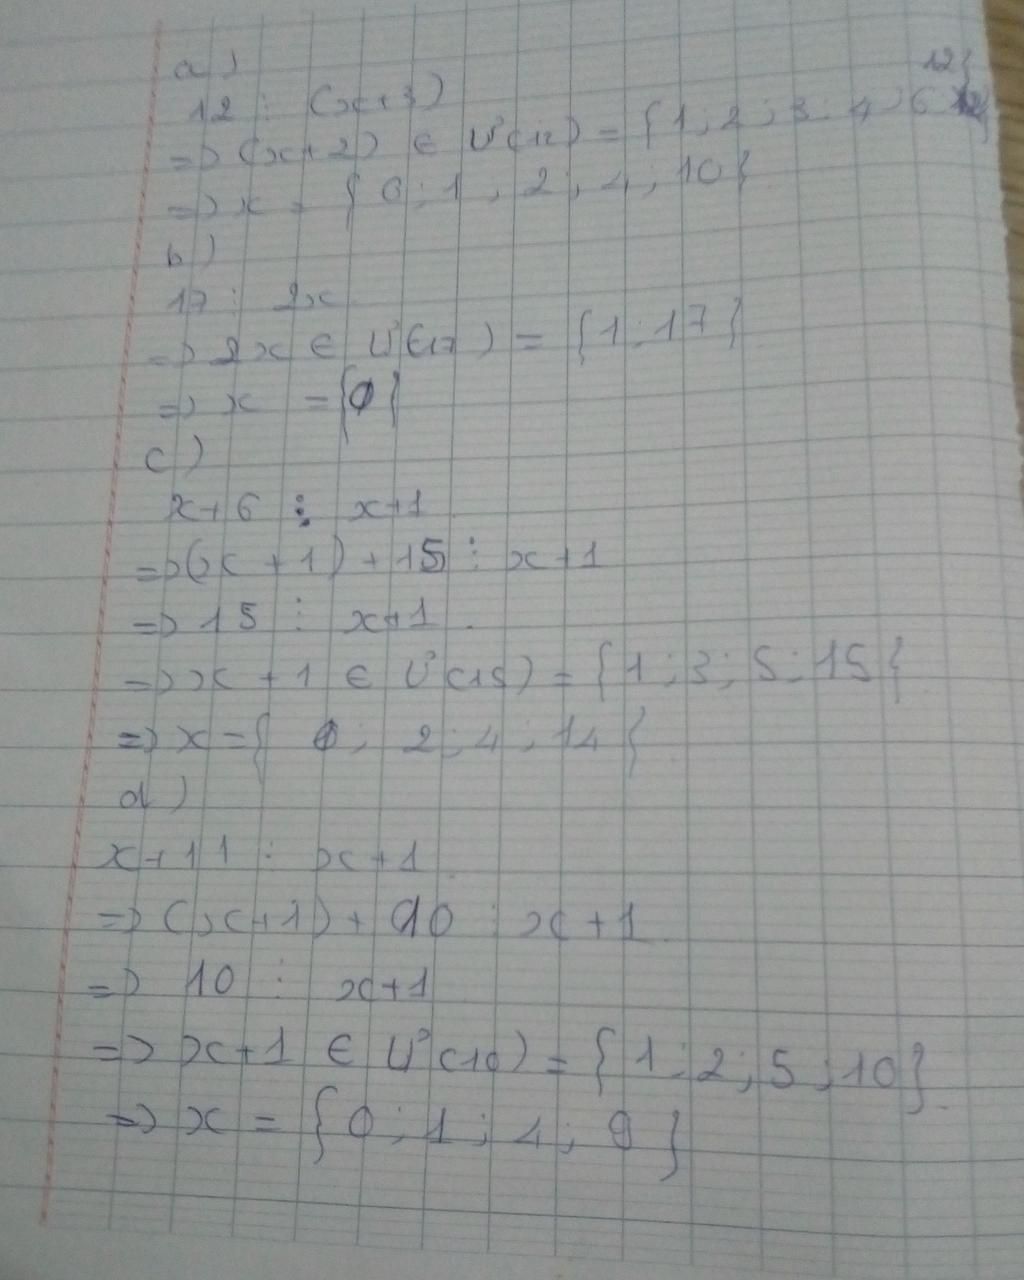 a)
12 ⋮ (x+3)
=> (x+2) ∈ Ư(12) = {1; 2; 3; 4; 6 12}
=> x = {0; 1; 2; 4; 10}
b)
17 ⋮ 2x
=> 2x ∈ Ư(17) = {1; 17}
=> x = {∅}
c)
x+6 ⋮ x+1
=> (x+1)+15 ⋮ x+1
=> 15 ⋮ x+1
=> x+1 ∈ Ư(15) = {1; 3; 5; 15}
=> x = {0; 2; 4; 14}
d)
x+11 ⋮ x+1
=> (x+1)+10 ⋮ x+1
=> 10 ⋮ x+1
=> x+1 ∈ Ư(10) = {1; 2; 5; 10}
=> x = {0; 1; 4; 9}